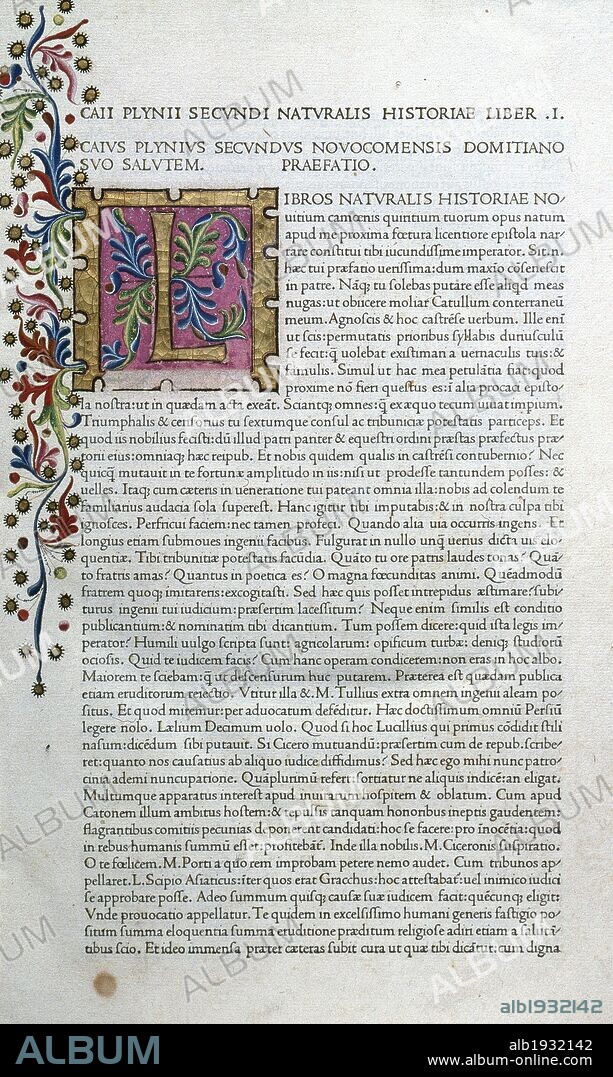 CAII PLYNII SECVNDI NATVRALIS HISTORIAE LIBER .I.
CAIVS PLYNIVS SECVNDVS NOVOCOMENSIS DOMITIANO
SVO SALVTEM. PRAEFATIO.
LIBROS NATVRALIS HISTORIAE NO-
uitium camœnis quiritium tuorum opus natum
apud me proxima fœtura licentiore epistola nar-
rare constitui tibi iucundissime imperator. Sit.n.
hæc tui præfatio uerissima:dum maxĩo cõsenescit
in patre. Nãq; tu solebas putare esse aliqd meas
nugas:ut obiicere moliar Catullum conterraneũ
meum. Agnoscis & hoc castrẽse uerbum. Ille enĩ
ut scis:permutatis prioribus syllabis duriusculũ
se fecit:q̃ uolebat existimari a uernaculis tuis:&
famulis. Simul ut hac mea petulãtia fiat:quod
proxime nõ fieri questus es:ĩ alia procaci episto-
la nostra:ut in quædam acta exeãt. Sciantq; omnes:q̃ ex æquo tecum uiuat impium.
Triumphalis & censorius tu sextumque consul ac tribuniciæ potestatis particeps. Et
quod iis nobilius fecisti:dũ illud patri panter & equestri ordini præstas præfectus præ-
torii eius:omniaq; hæc reipub. Et nobis quidem qualis in castrẽsi contubernio? Nec
quicq̃ mutauit in te fortunæ amplitudo in iis:nisi ut prodesse tantundem posses: &
uelles. Itaq; cum cæteris in ueneratione tui pateant omnia illa:nobis ad colendum te
familiarius audacia sola superest. Hanc igitur tibi imputabis:& in nostra culpa tibi
ignosces. Perfricui faciem:nec tamen profeci. Quando alia uia occurris ingens. Et
longius etiam submoues ingenii facibus. Fulgurat in nullo unq̃ uerius dicta uis elo-
quentiæ. Tibi tribunitiæ potestatis facũdia. Quãto tu ore patris laudes tonas? Quã-
to fratris amas? Quantus in poetica es? O magna fœcunditas animi. Quẽadmodũ
fratrem quoq; imitareris:excogitasti. Sed hæc quis posset intrepidus æstimare?subi-
turus ingenii tui iudicium:præsertim lacessitum? Neque enim similis est conditio
publicantium:& nominatim tibi dicantium. Tum possem dicere:quid ista legis im-
perator? Humili uulgo scripta sunt:agricolarum: opificum turbæ: deniq; studiorũ
ociosis. Quid te iudicem facis? Cum hanc operam condicerem:non eras in hoc albo.
Maiorem te sciebam:q̃ ut descensurum huc putarem. Præterea est quædam publica
etiam eruditorum reiectio. Vtitur illa &.M. Tullius extra omnem ingenii aleam po-
situs. Et quod miremur:per aduocatum defẽditur. Hæc doctissimum omniũ Persiũ
legere nolo. Lælium Decimum uolo. Quod si hoc Lucillius qui primus cõdidit stili
nasum:dicẽdum sibi putauit. Si Cicero mutuandũ:præsertim cum de repub.scribe-
ret:quanto nos causatius ab aliquo iudice diffidimus? Sed hæc ego mihi nunc patro-
cinia ademi nuncupatione. Quãplurimũ refert:sortiatur ne aliquis iudicẽ:an eligat.
Multumque apparatus interest apud inuitatum hospitem & oblatum. Cum apud
Catonem illum ambitus hostem:& repulsis tanquam honoribus ineptis gaudentem:
flagrantibus comitiis pecunias deponerent candidati:hoc se facere:pro inocẽtia:quod
in rebus humanis summũ esset:profitebãt. Inde illa nobilis.M.Ciceronis suspiratio.
O te fœlicem.M.Porti a quo rem improbam petere nemo audet. Cum tribunos ap-
pellaret.L.Scipio Asiaticus:ĩter quos erat Gracchus:hoc attestabat:uel inimico iudici
se approbare posse. Adeo summum quisq; causæ suæ iudicem facit:quẽcunq; eligit:
Vnde prouocatio appellatur. Te quidem in excelsissimo humani generis fastigio po-
situm summa eloquentia summa eruditione præditum religiose adiri etiam a salutã-
tibus scio. Et ideo immensa præter cæteras subit cura ut quæ tibi dicãtur:tum digna
alb1932142
ALBUM
alb1932142
www.album-online.com